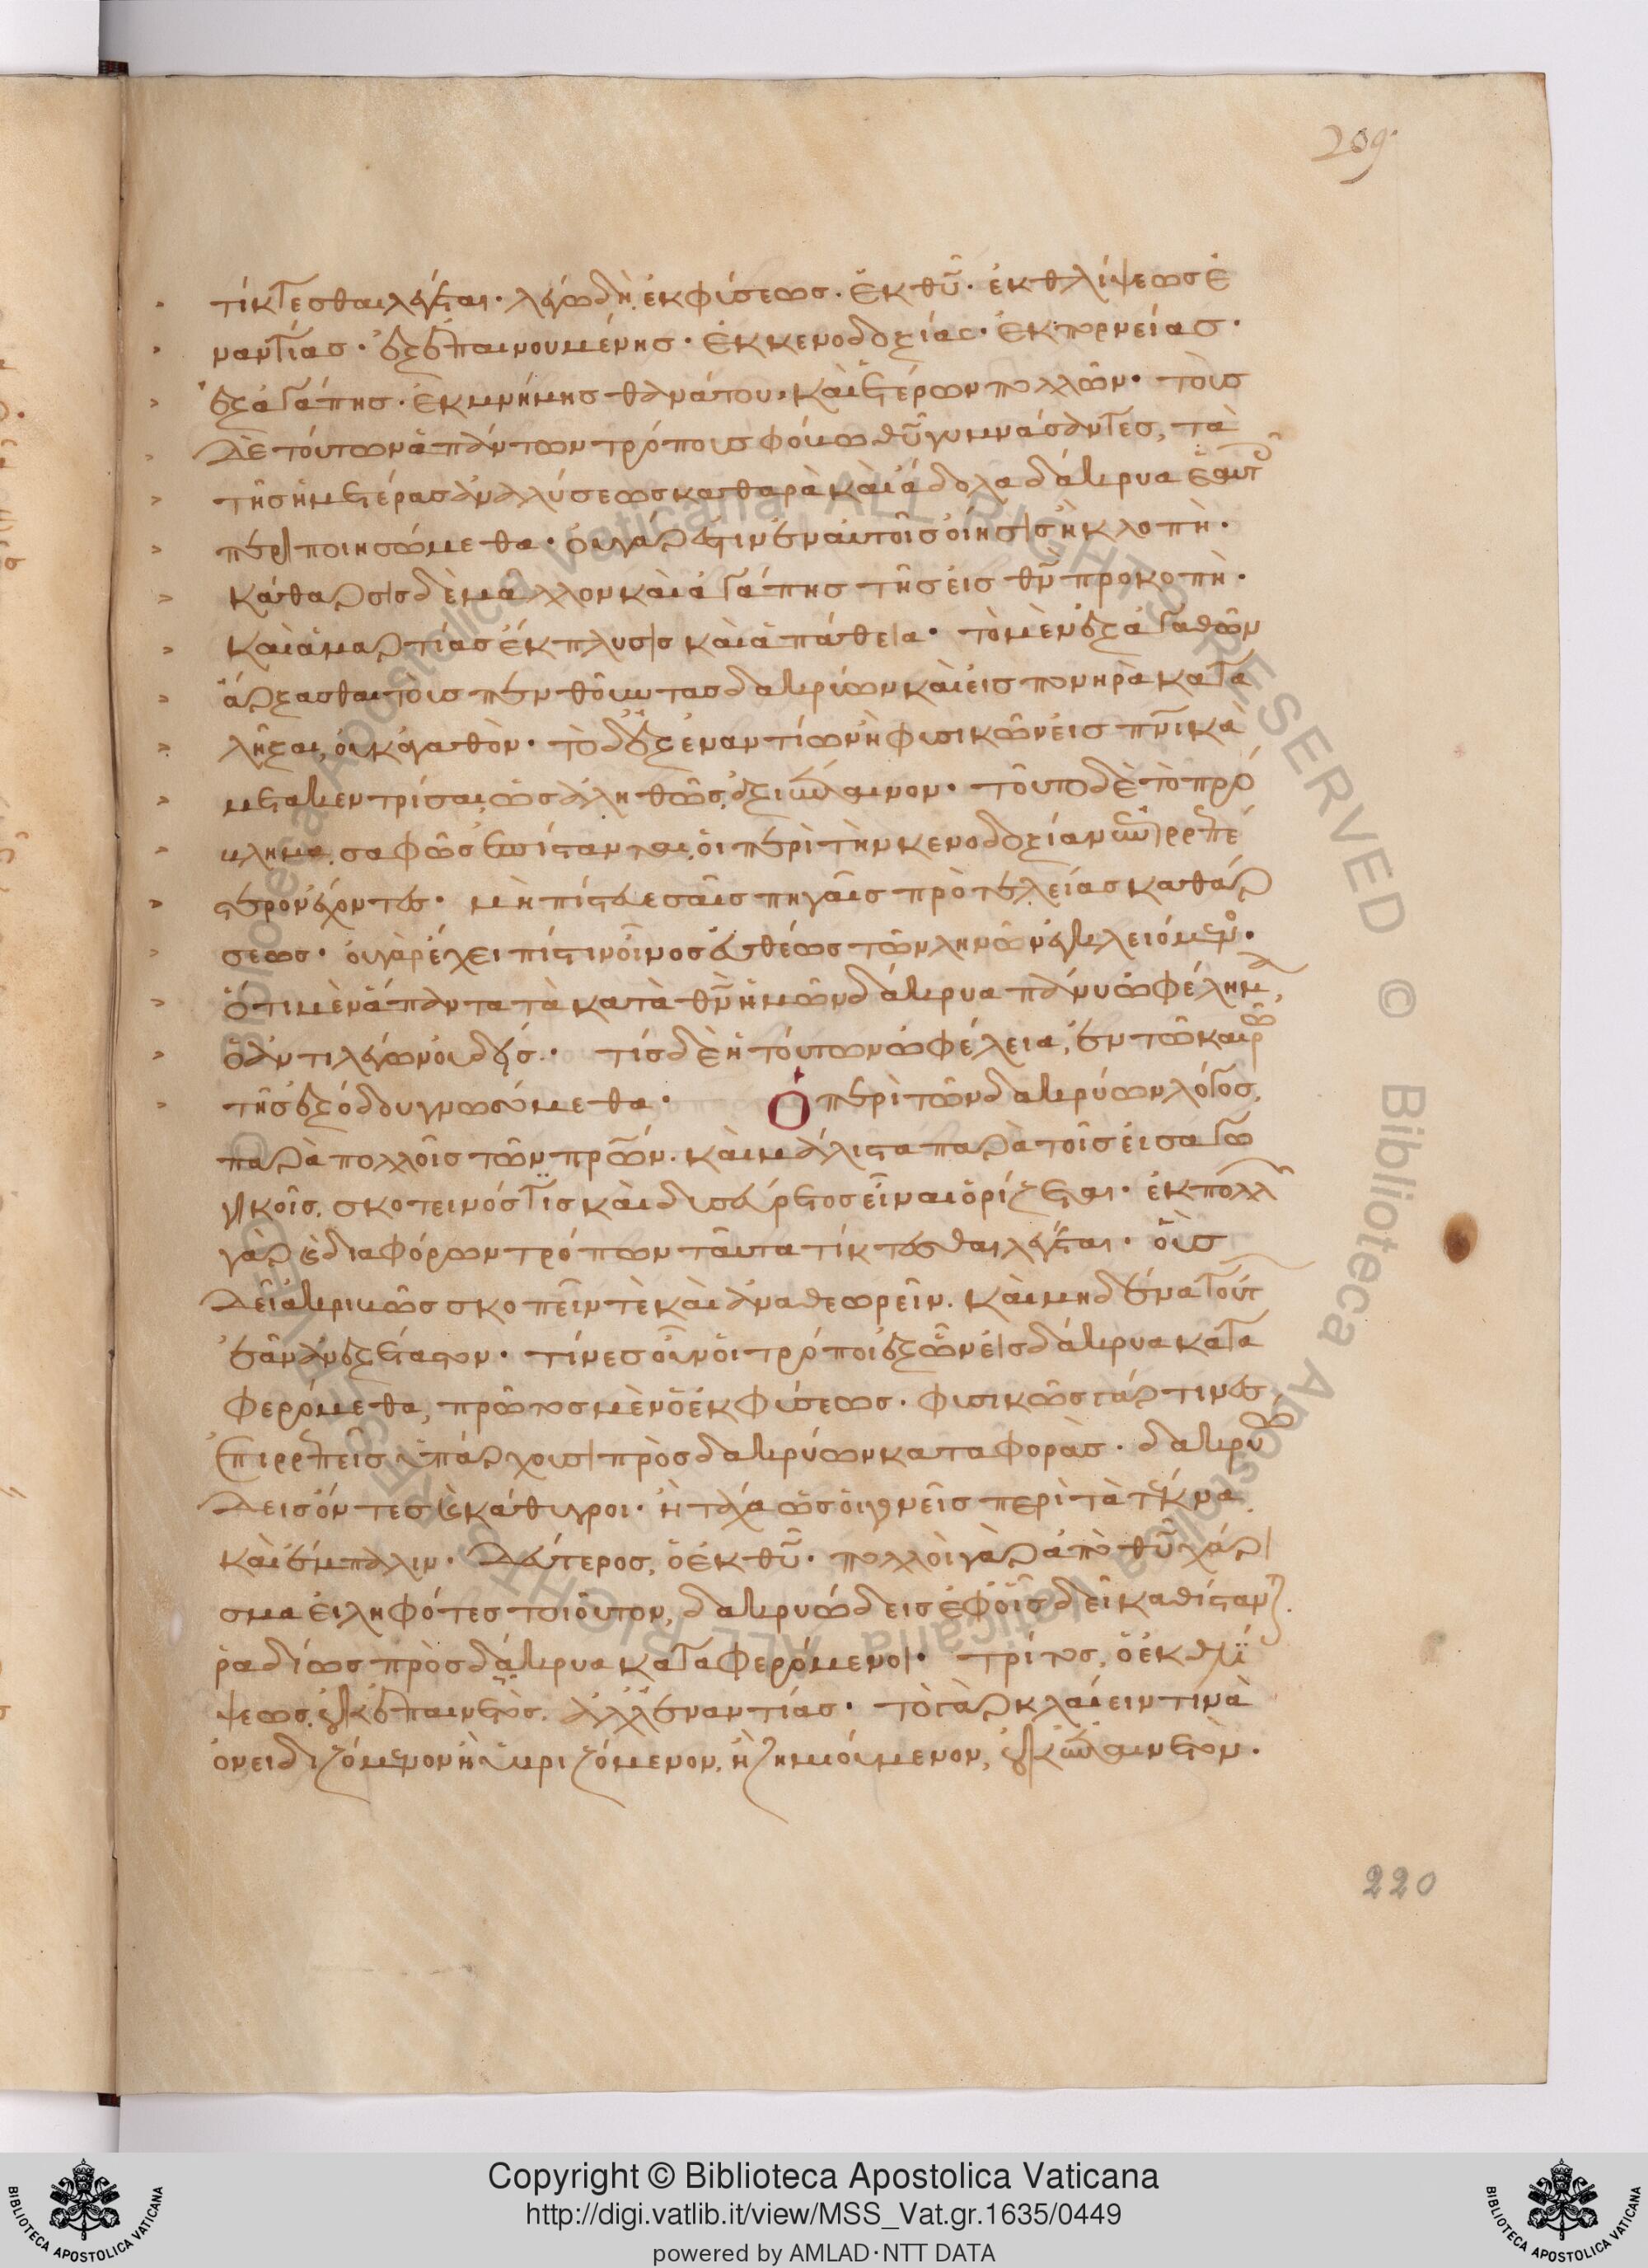 209
τίκτεσθαι λέγεται· λέγω δὴ ἐκ φύσεως· ἐκ θῦ· ἐκ θλίψεως ἐ
ναντίας· ἐξ ἐπαινουμένης· ἐκ κενοδοξίας· ἐκ πορνείας·
ἐξ ἀγάπης· ἐκ μνήμης θανάτου, καὶ ἑτέρων πολλῶν· τοὺς
δὲ τούτων ἁπάντων τρόπους φόβω θῦ γυμνάσαντες, τὰ
τῆς ἡμετέρας ἀναλύσεως καθαρὰ καὶ ἄδολα δάκρυα ἑαυτ
περιποιησώμεθα· οὐ γάρ ἐστιν ἐν αὐτοῖς οἴησις ἢ κλοπή·
κάθαρσις δὲ μᾶλλον καὶ ἀγάπης τῆς εἰς θν προκοπή·
καὶ ἁμαρτίας ἔκπλυσις καὶ ἀπάθεια· τὸ μὲν ἐξ ἀγαθῶν
ἄρξασθαι τοῖς πενθοῦντας δακρύων καὶ εἰς πονηρὰ κατα
λῆξαι, οὐκ ἀγαθόν· τὸ δ' ἐξ ἐναντίων ἢ φυσικῶν εἰς πνικὰ
μετακεντρίσαι, ὡς ἀληθῶς ἀξιέπαινον· τοῦτο δὲ τὸ πρό
βλημα, σαφῶς ἐπίστανται, οἱ περὶ τὴν κενοδοξίαν ἐπιρρεπέ
στερον ἔχοντες· μὴ πίστευε σαῖς πηγαῖς πρὸ τελείας καθάρ
σεως· οὐ γὰρ ἔχει πίστιν οἶνος εὐθέως τῶν ληνῶν ἐγκλειόμεν·
ὅτι μὲν ἅπαντα τὰ κατὰ θν ἡμῶν δάκρυα πάνυ ὠφέλημα,
ὁ ἀντιλέγων οὐδείς· τίς δὲ ἡ τούτων ὠφέλεια, ἐν τῶ καιρῶ
τῆς ἐξόδου γνωσώμεθα· Ὁ περὶ τῶν δακρύων λόγος,
παρὰ πολλοῖς τῶν πρων· καὶ μάλιστα παρὰ τοῖς εἰσαγω
γικοῖς, σκοτεινός τις καὶ δυσεύρετος εἶναι ὁρίζεται· ἐκ πολλ
γὰρ καὶ διαφόρων τρόπων ταῦτα τίκτεσθαι λέγεται· οὓς
δεῖ ἀκριβῶς σκοπεῖν τὲ καὶ ἀναθεωρεῖν· καὶ μηδένα τούτ
ἐᾶν ἀνεξέταστον· τίνες οὖν οἱ τρόποι ἐξ ὧν εἰς δάκρυα κατα
φερόμεθα, πρῶτος μὲν ὁ ἐκ φύσεως· φυσικῶς γάρ τινες
ἐπιρρεπεῖς ὑπάρχουσι πρὸς δακρύων καταφοράς· δακρυώ
δεις ὄντες καὶ κάθυγροι· ἢ τάχα ὡς οἱ γονεῖς περὶ τὰ τέκνα
καὶ ἔμπαλιν· δεύτερος, ὁ ἐκ θῦ· πολλοὶ γὰρ ἀπὸ θῦ χάρι
σμα εἰληφότες τοιοῦτον, δακρυώδεις ἐφ' οἷς δεῖ καθίσταντ
ῥαδίως πρὸς δάκρυα καταφερόμενοι· τρίτος, ὁ ἐκ θλί
ψεως, οὐκ ἐπαινετῶς, ἀλλ' ἐναντίας· τὸ γὰρ κλαίειν τινὰ
ὀνειδιζόμενον ἢ ὑβριζόμενον, ἢ ζημιούμενον, οὐκ ἐπαινετόν·
220
Copyright © Biblioteca Apostolica Vaticana
http://digi.vatlib.it/view/MSS_Vat.gr.1635/0449
powered by AMLAD·NTT DATA
BIBLIOTECA APOSTOLICA VATICANA
BIBLIOTECA APOSTOLICA VATICANA